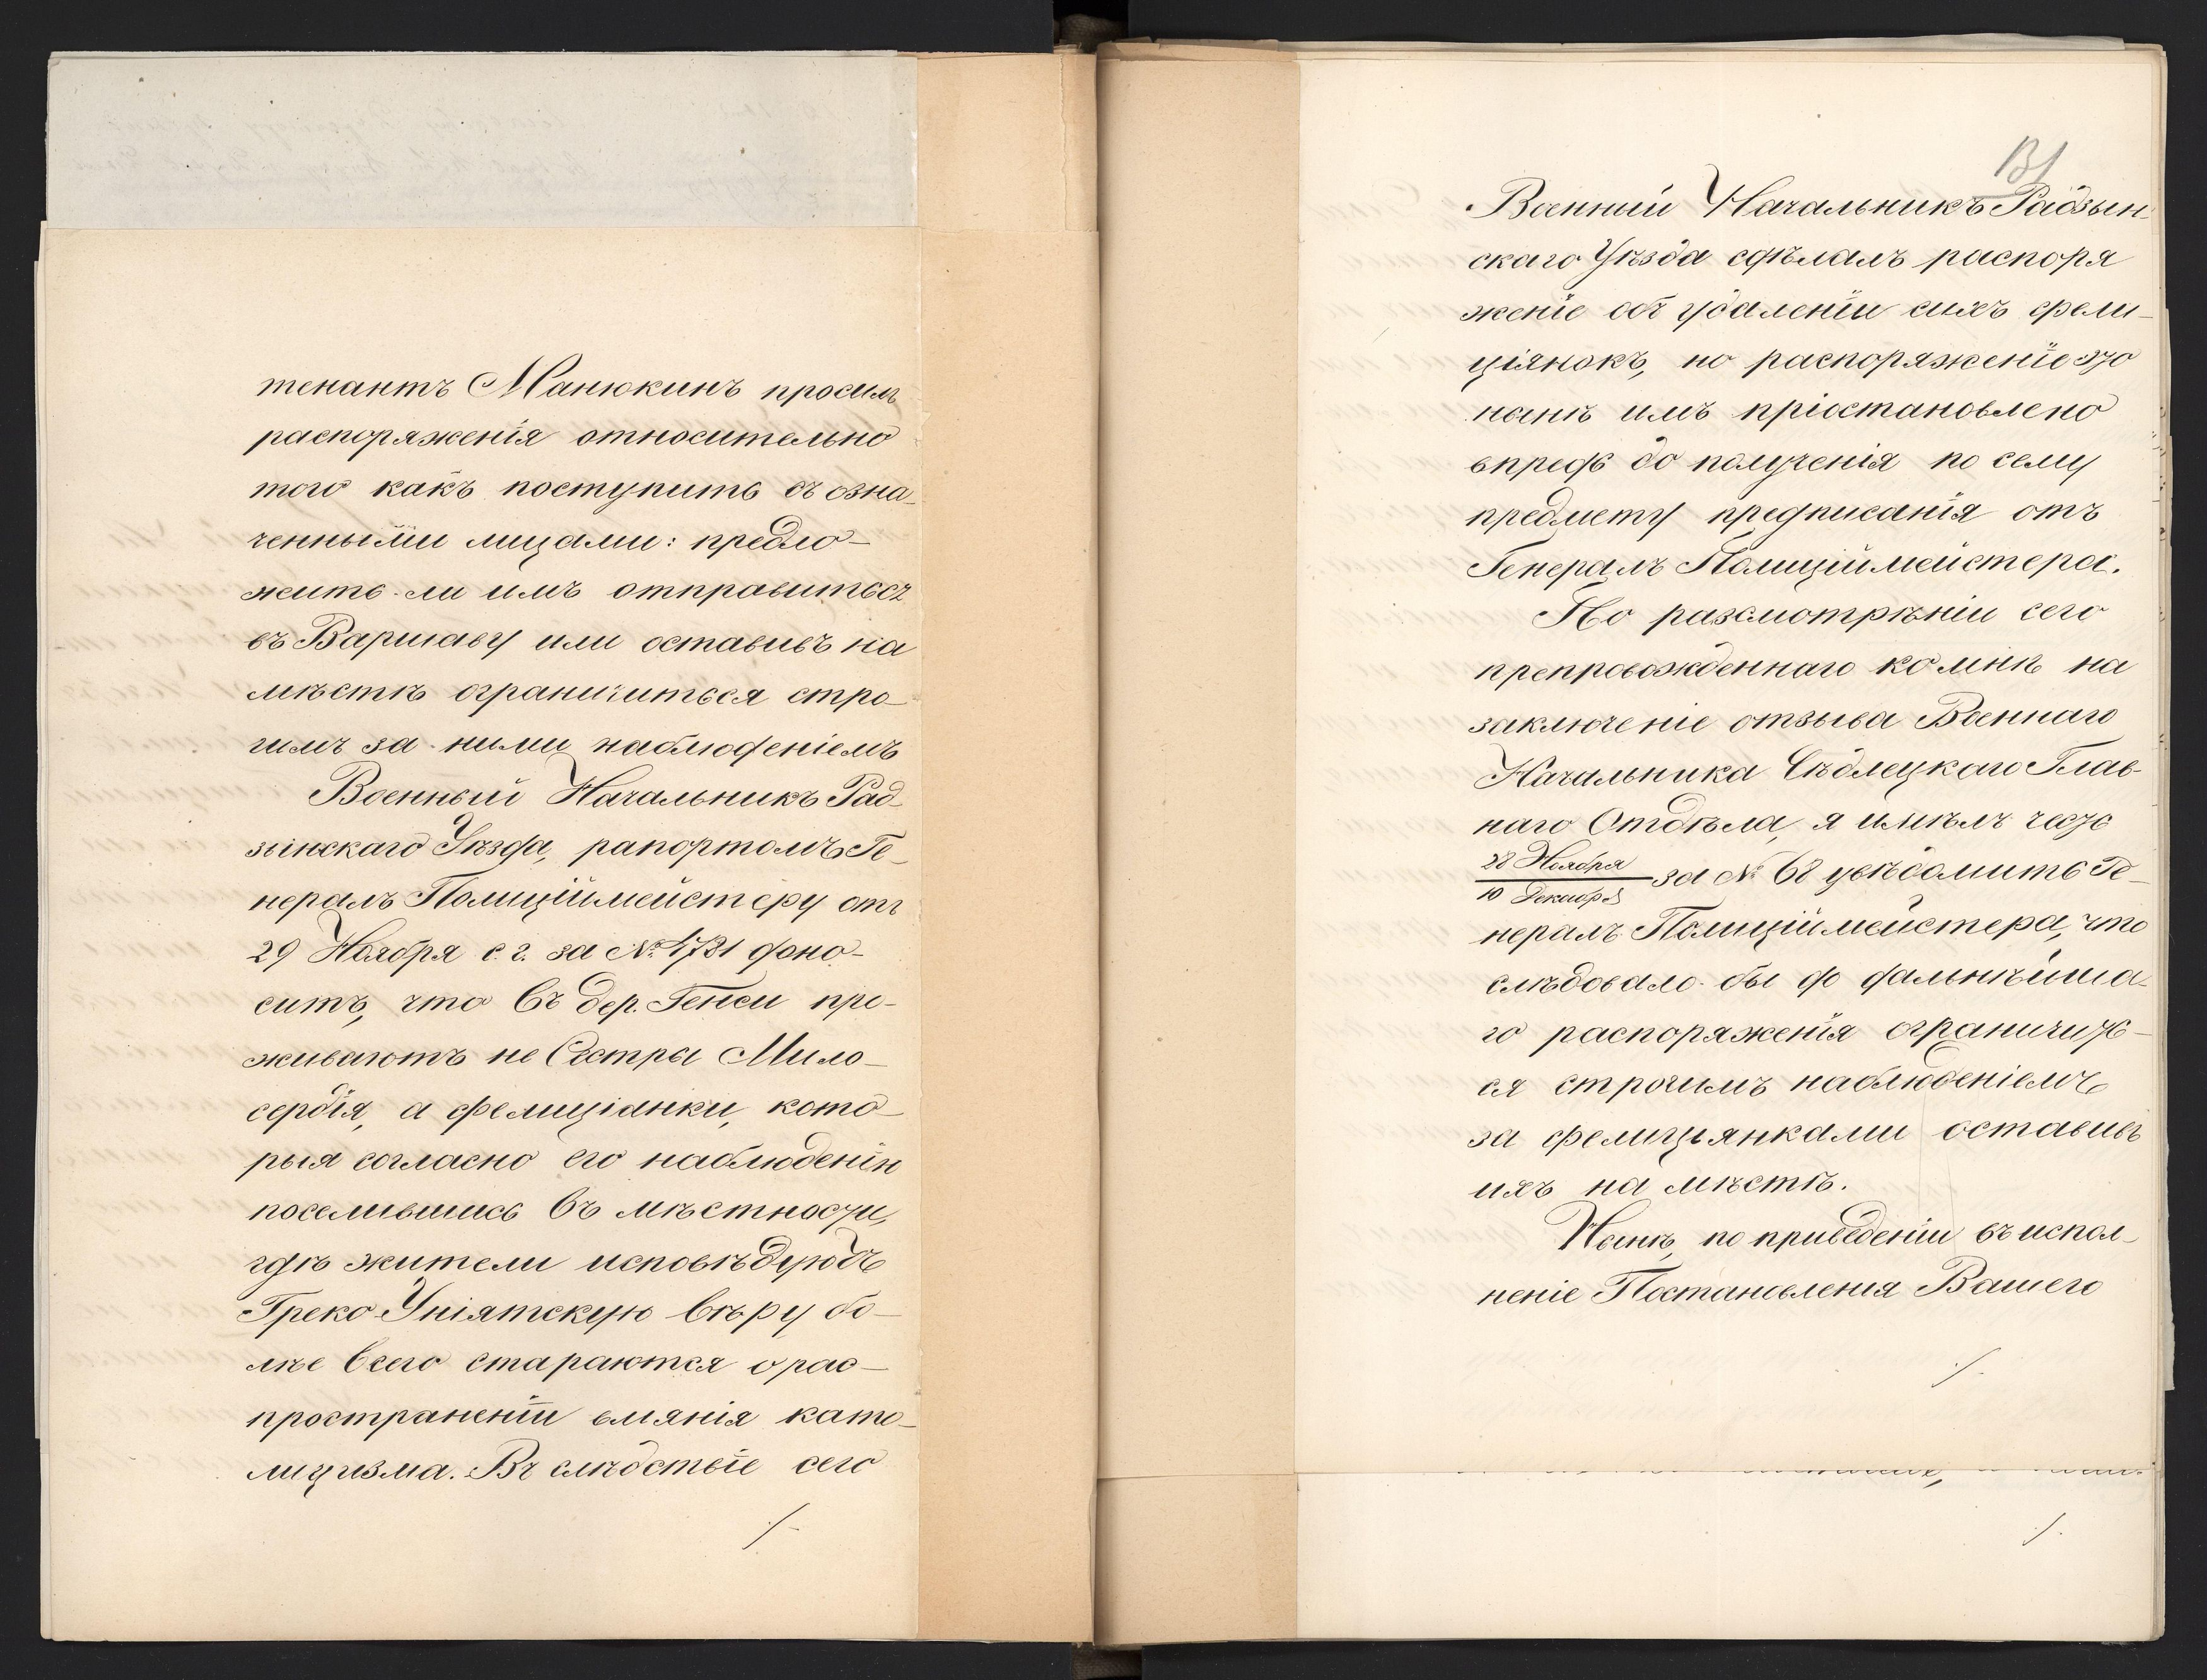 тенантъ Манюкинъ просилъ
распоряженія относительно
того какъ поступить съ озна-
ченными лицами: предло-
жить-ли имъ отправиться
въ Варшаву или оставивъ на
мѣстѣ ограничиться стро-
гимъ за ними наблюденіемъ
Военный Начальникъ Рад-
зынскаго Уѣзда, рапортомъ Ге-
нералъ Полиціймейстеру отъ
29 Ноября с. г. за № 1731 доно-
ситъ, что въ дер. Генси про-
живаютъ не Сестры Мило-
сердія, а фелиціанки, кото-
рыя согласно его наблюденію
поселившись въ мѣстности,
гдѣ жители исповѣдуютъ
Греко-Уніятскую вѣру бо-
лѣе всего стараются о рас-
пространеніи вліянія като-
лицизма. Въ слѣдствіе сего
./.
131
Военный Начальникъ Радзын-
скаго Уѣзда сдѣлалъ распоря
женіе объ удаленіи сихъ фели-
ціянокъ, но распоряженіе это
нынѣ имъ пріостановлено
впредь до полученія по сему
предмету предписанія отъ
Генералъ Полиціймейстера.
По разсмотрѣніи сего
препровожденнаго ко мнѣ на
заключеніе отзыва Военнаго
Начальника Сѣдлецкаго Глав-
наго Отдѣла, я имѣлъ честь
28 Ноября
10 Декабря за № 68 увѣдомить Ге-
нералъ Полиціймейстера, что
слѣдовало-бы до дальнѣйша-
го распоряженія ограничить-
ся строгимъ наблюденіемъ
за фелиціянками оставивъ
ихъ на мѣстѣ.
Нынѣ, по приведеніи въ испол-
неніе Постановленія Вашего
./.
./.